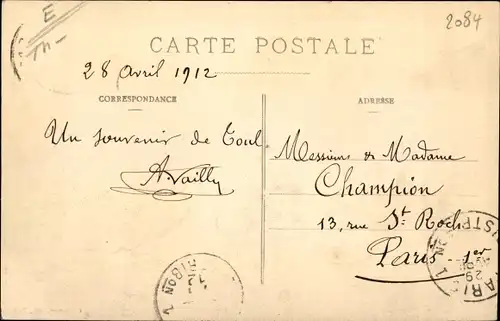 E
Th-
2084
CARTE POSTALE
28 Avril 1912
CORRESPONDANCE
ADRESSE
Un souvenir de Toul
A. Vailly
Messieurs & Madame
Champion
13, rue St. Roch
Paris 1er